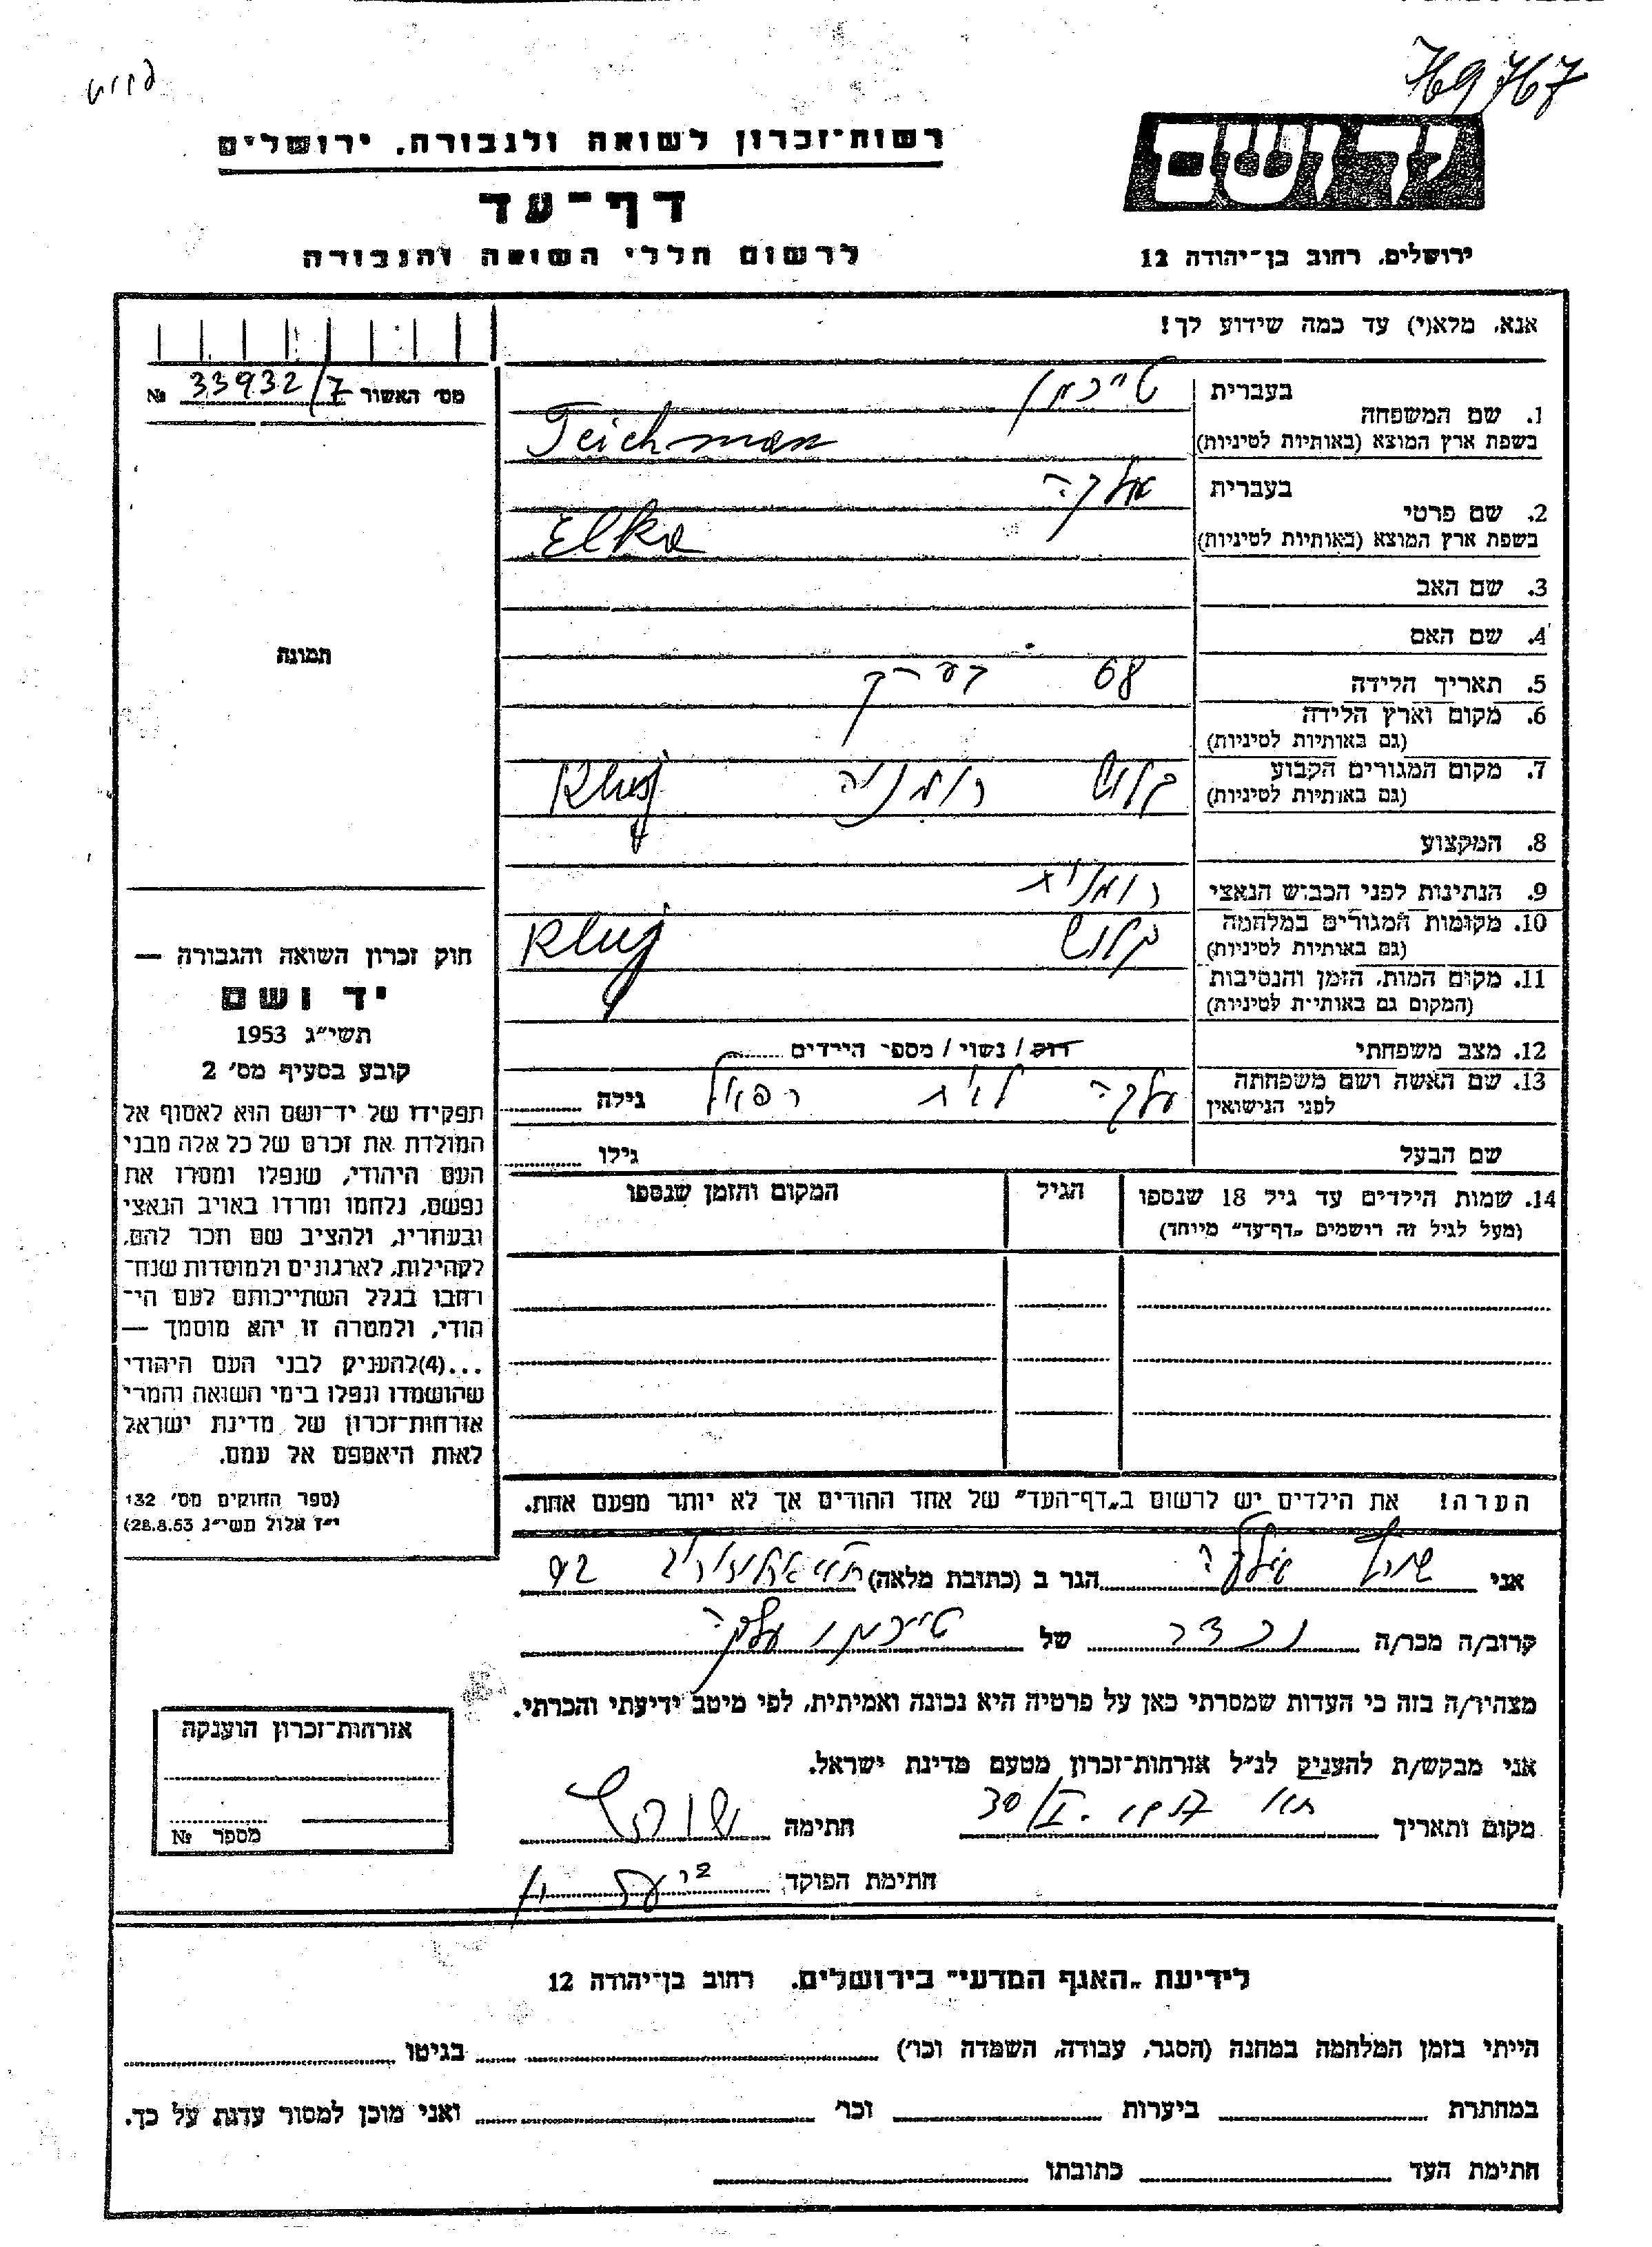 769767
רשות־זכרון לשואה ולגבורה, ירושלים
דף־עד
לרשום חללי השואה והגבורה
יד ושם
ירושלים, רחוב בן־יהודה 12
אנא, מלא(י) עד כמה שידוע לך!
מס׳ האשור 33932/7 №
1. שם המשפחה
בעברית טייכמן
בשפת ארץ המוצא (באותיות לטיניות) Teichman
2. שם פרטי
בעברית אלקה
בשפת ארץ המוצא (באותיות לטיניות) Elka
3. שם האב
4. שם האם
תמונה
5. תאריך הלידה 68
6. מקום וארץ הלידה
(גם באותיות לטיניות)
7. מקום המגורים הקבוע קלוש רומניה Kluj
(גם באותיות לטיניות)
8. המקצוע
9. הנתינות לפני הכבוש הנאצי רומנית
10. מקומות המגורים במלחמה קלוש Kluj
(גם באותיות לטיניות)
11. מקום המות, הזמן והנסיבות
(המקום גם באותיות לטיניות)
12. מצב משפחתי רוק / נשוי / מספר הילדים
13. שם האשה ושם משפחתה
לפני הנישואין עלקה לבית גילה
שם הבעל גילו
14. שמות הילדים עד גיל 18 שנספו
(מעל לגיל זה רושמים „דף־עד״ מיוחד)
הגיל
המקום והזמן שנספו
חוק זכרון השואה והגבורה —
יד ושם
תשי״ג 1953
קובע בסעיף מס׳ 2
תפקידו של יד־ושם הוא לאסוף אל
המולדת את זכרם של כל אלה מבני
העם היהודי, שנפלו ומסרו את
נפשם, נלחמו ומרדו באויב הנאצי
ובעוזריו, ולהציב שם וזכר להם,
לקהילות, לארגונים ולמוסדות שנח־
רבו בגלל השתייכותם לעם הי־
הודי, ולמטרה זו יהא מוסמך —
...(4) להעניק לבני העם היהודי
שהושמדו ונפלו בימי השואה והמרי
אזרחות־זכרון של מדינת ישראל
לאות היאספם אל עמם.
(ספר החוקים מס׳ 132
י״ז אלול תשי״ג 28.8.53)
הערה! את הילדים יש לרשום ב„דף־העד״ של אחד ההורים אך לא יותר מפעם אחת.
אני הגר ב (כתובת מלאה) 92
קרוב/ה מכר/ה נכדה של טייכמן עלקה
מצהיר/ה בזה כי העדות שמסרתי כאן על פרטיה היא נכונה ואמיתית, לפי מיטב ידיעתי והכרתי.
אני מבקש/ת להעניק לנ״ל אזרחות־זכרון מטעם מדינת ישראל.
מקום ותאריך 30/I חתימה
חתימת הפוקד
אזרחות־זכרון הוענקה
מספר №
לידיעת „האגף המדעי״ בירושלים, רחוב בן־יהודה 12
הייתי בזמן המלחמה במחנה (הסגר, עבודה, השמדה וכו׳) בגיטו
במחתרת ביערות וכו׳ ואני מוכן למסור עדות על כך.
חתימת העד כתובתו